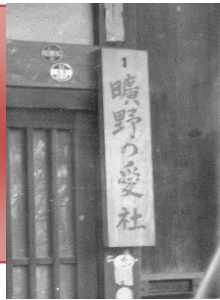 1
曠野の愛社